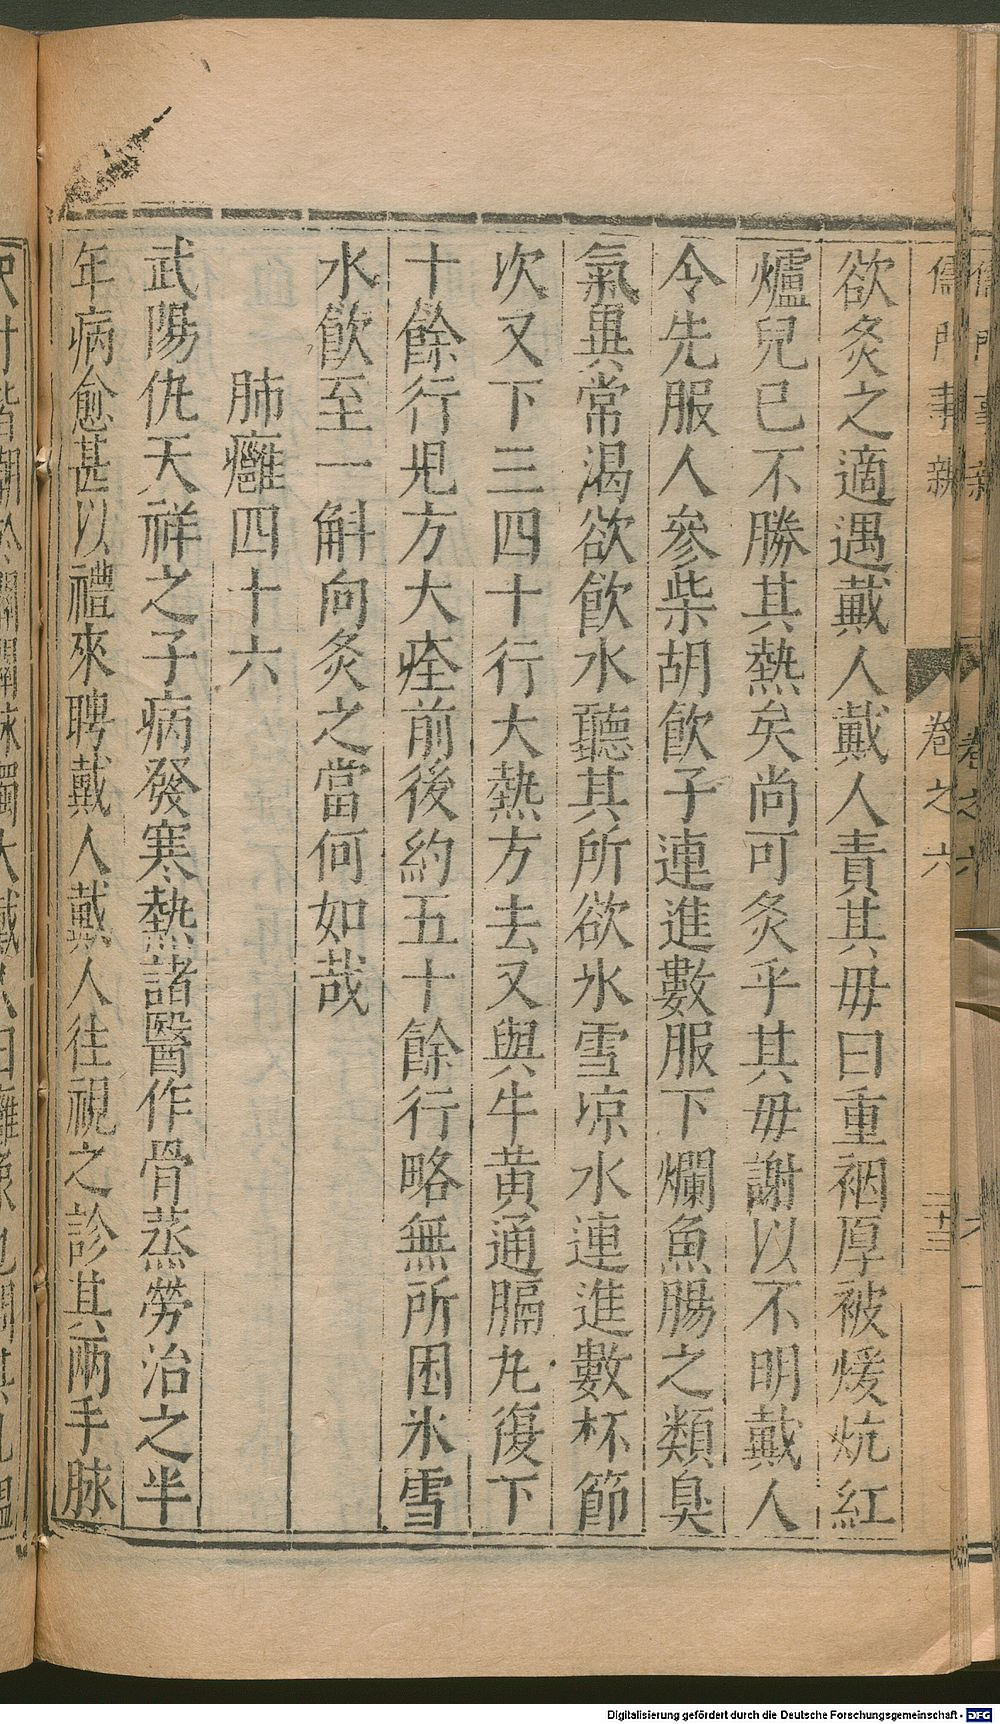 儒門事親
卷之六
欲灸之適遇戴人戴人責其毋曰重裀厚被煖炕紅
爐兒已不勝其熱矣尚可灸乎其毋謝以不明戴人
令先服人參柴胡飲子連進數服下爛魚腸之類臭
氣異常渴欲飲水聽其所欲氷雪凉水連進數杯節
次又下三四十行大熱方去又與牛黄通膈丸復下
十餘行児方大痊前後約五十餘行略無所困氷雪
水飲至一斛向灸之當何如哉
肺癰四十六
武陽仇天祥之子病發寒熱諸醫作骨蒸勞治之半
年病愈甚以禮來聘戴人戴人往視之診其兩手脉
Digitalisierung gefördert durch die Deutsche Forschungsgemeinschaft - DFG